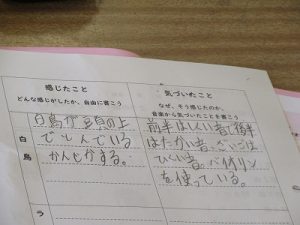 感じたこと
どんな感じがしたか、自由に書こう
気づいたこと
なぜ、そう感じたのか、
音楽から気づいたことを書こう
白鳥
白鳥が
上
でとんでいる
かんじがする。
前半は
後半
はたかい音、さいごは
ひくい音。バイオリン
を使っている。
ラ